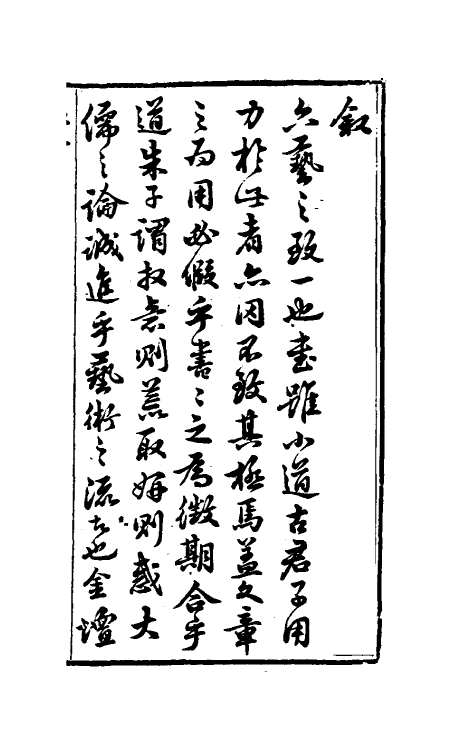 叙
六藝之致一也書雖小道古君子用
力於此者亦罔不致其極焉蓋文章
之為用必假乎書々之為徵期合乎
道朱子謂放意則荒取妍則惑大
儒之論誠進乎藝術之流者也金壇